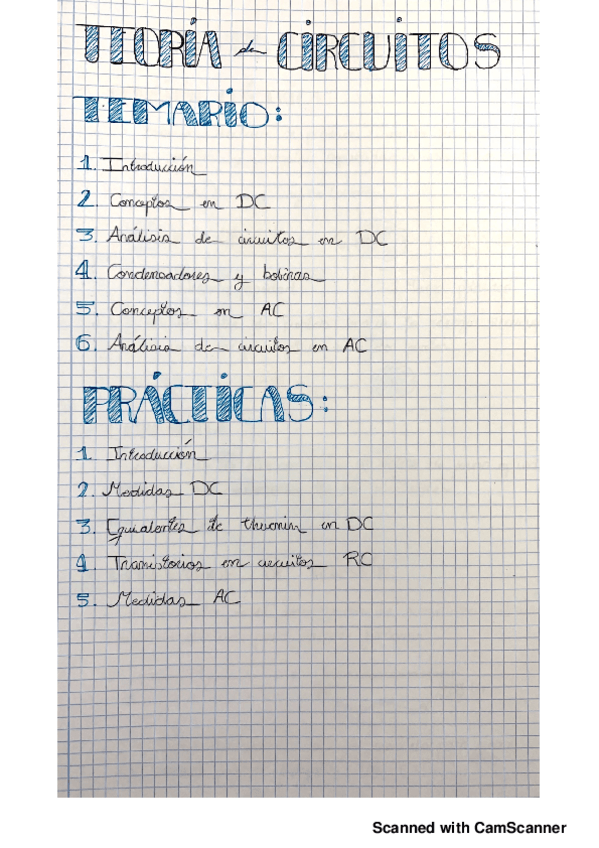 TEORÍA de CIRCUITOS
TEMARIO:
1. Introducción
2. Conceptos en DC
3. Análisis de circuitos en DC
4. Condensadores y bobinas
5. Conceptos en AC
6. Análisis de circuitos en AC
PRÁCTICAS:
1. Introducción
2. Medidas DC
3. Equivalentes de thevenin en DC
4. Transistorios en circuitos RC
5. Medidas AC
Scanned with CamScanner